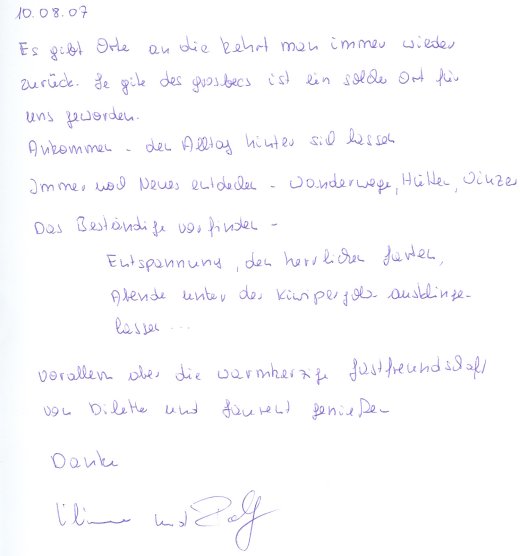 10.08.07
Es gibt Orte an die kehrt man immer wieder
zurück. Le gite des grosbecs ist ein solcher Ort für
uns geworden.
Ankommen - den Alltag hinter sich lassen
Immer noch Neues entdecken - Wanderwege, Hütten, Winzer
Das Beständige vorfinden -
Entspannung, den herrlichen Garten,
Abende unter der ausklingen
lassen ...
vorallem aber die warmherzige Gastfreundschaft
von und Laurent genießen
Danke
und Ralf